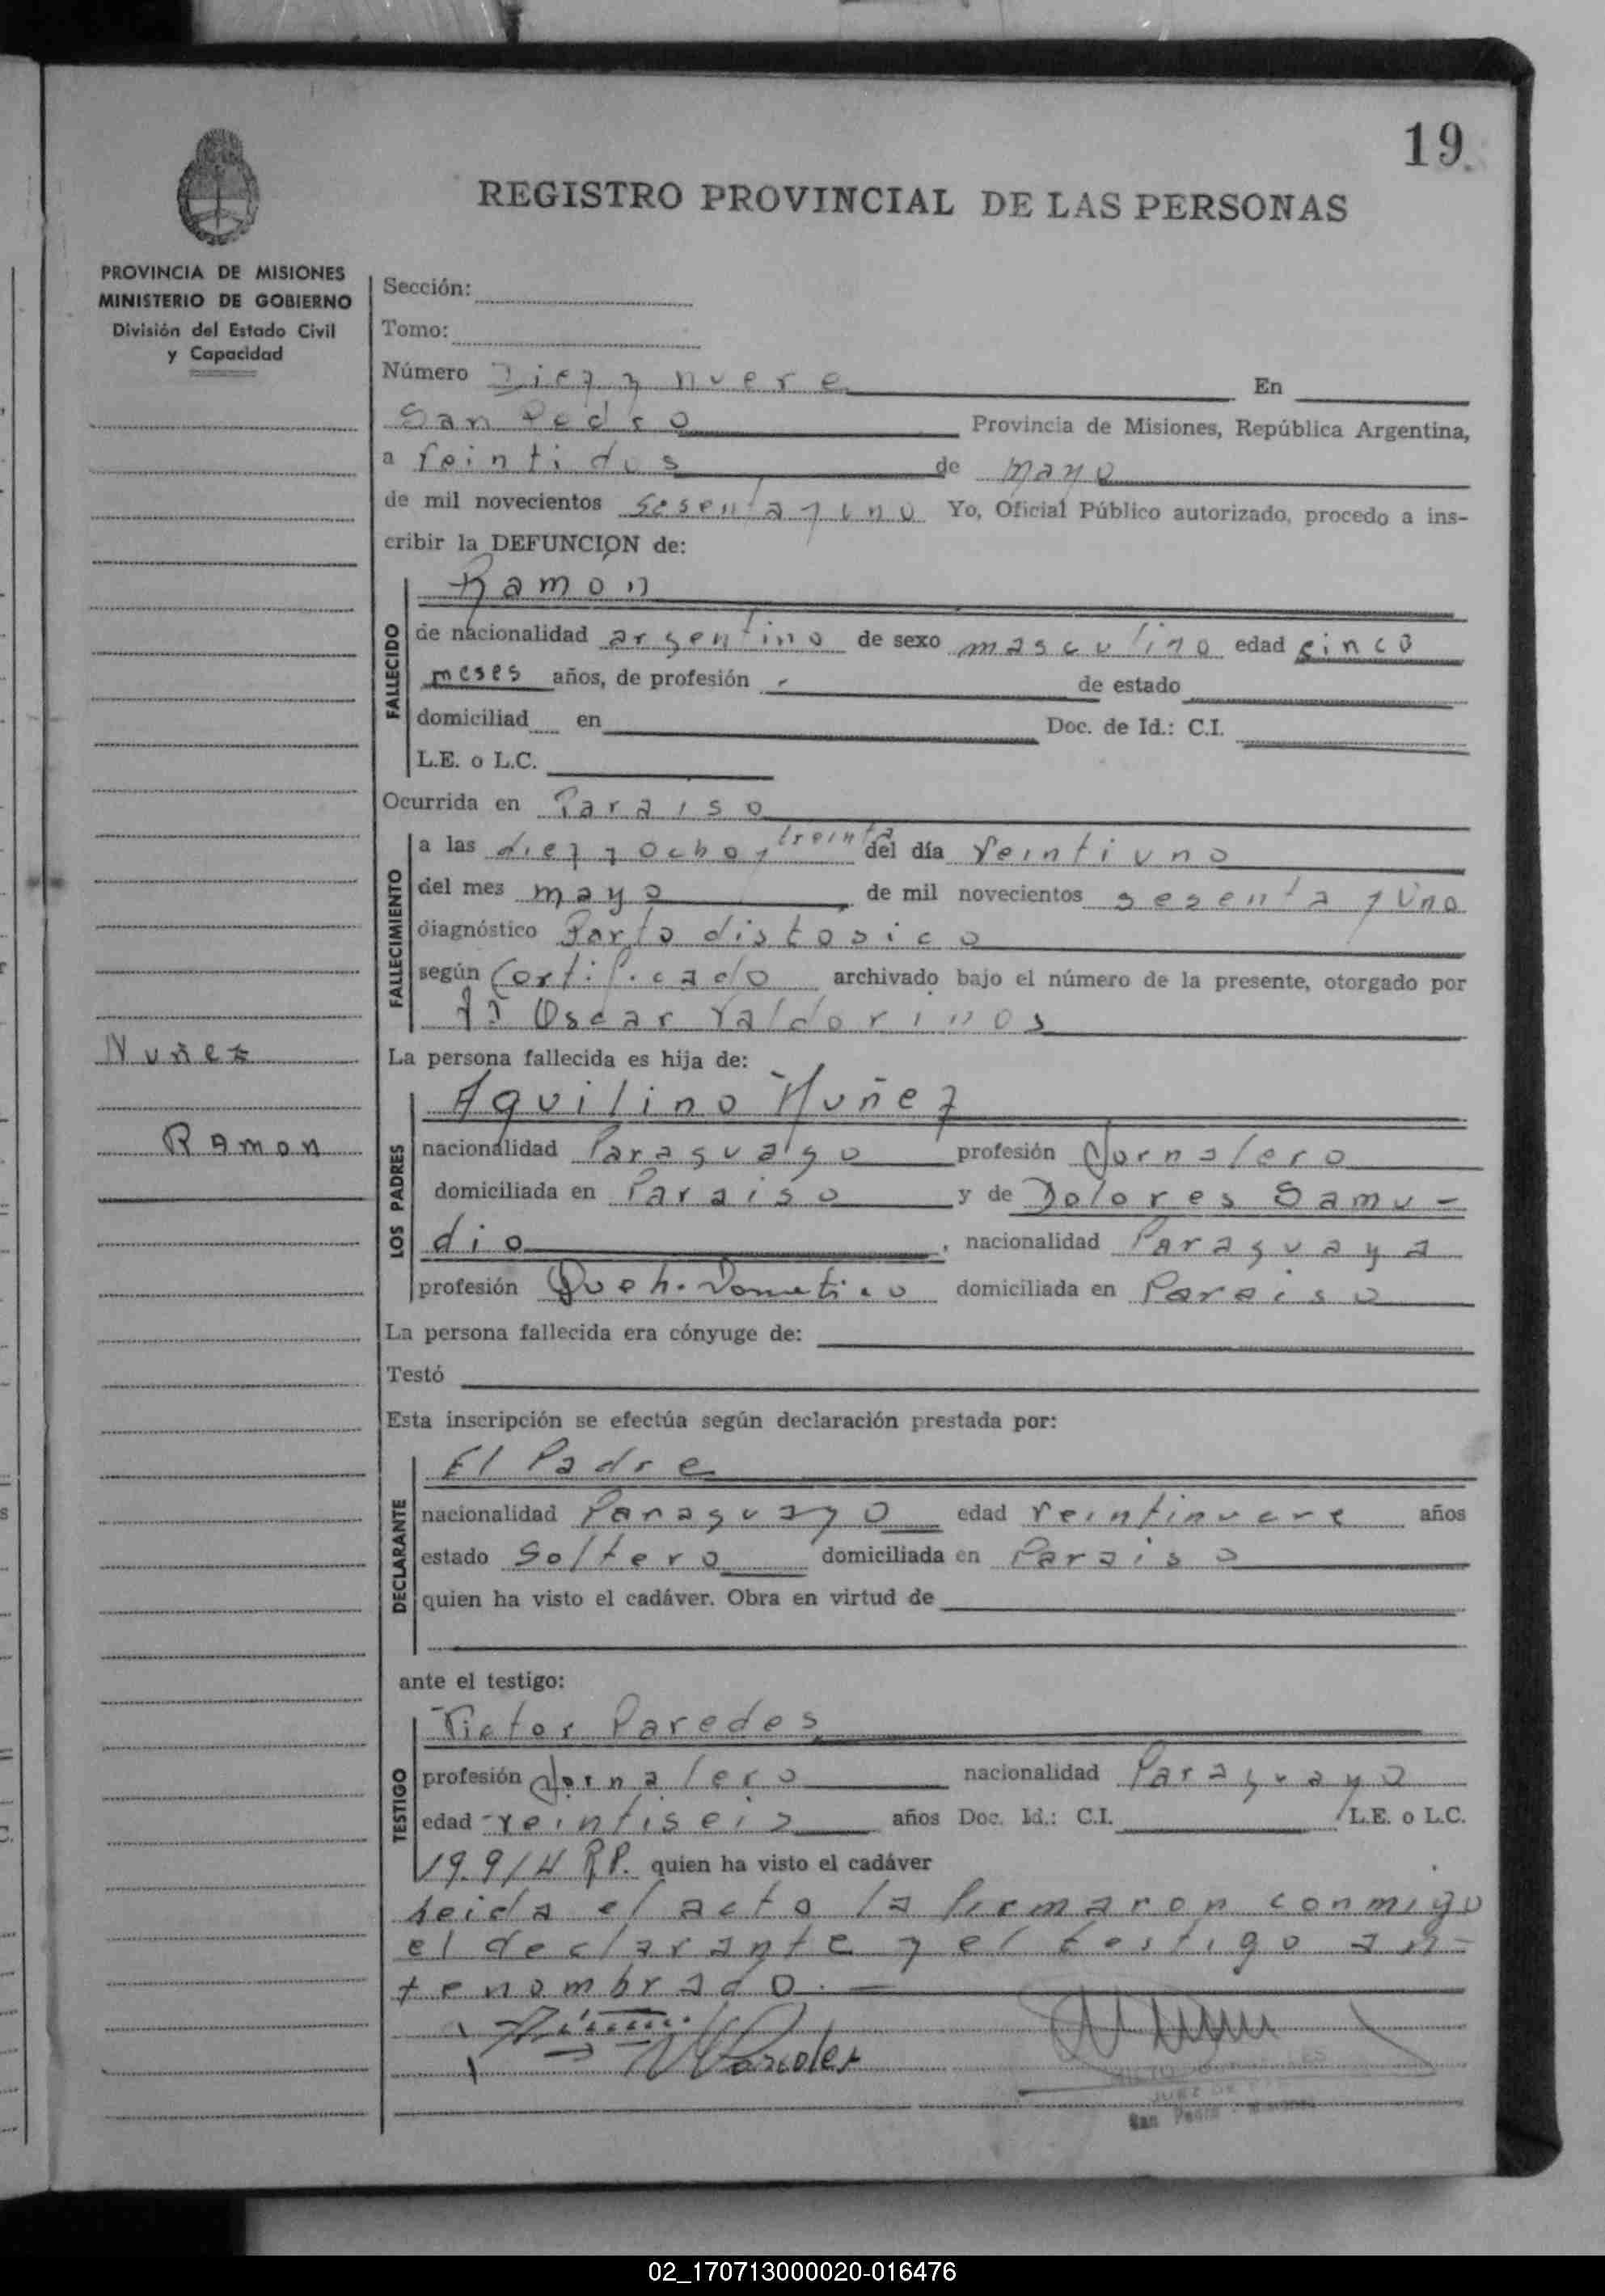 19
REGISTRO PROVINCIAL DE LAS PERSONAS
PROVINCIA DE MISIONES
MINISTERIO DE GOBIERNO
División del Estado Civil
y Capacidad
Nuñez
Ramon
Sección:
Tomo:
Número Diez y nueve En
San Pedro Provincia de Misiones, República Argentina,
a veintidos de mayo
de mil novecientos sesenta y uno Yo, Oficial Público autorizado, procedo a ins-
cribir la DEFUNCION de:
FALLECIDO
Ramón
de nacionalidad argentino de sexo masculino edad cinco
meses años, de profesión - de estado
domiciliad en Doc. de Id.: C.I.
L.E. o L.C.
Ocurrida en Paraiso
FALLECIMIENTO
a las diez y ocho y treinta del día veintiuno
del mes mayo de mil novecientos sesenta y uno
diagnóstico Parto distosico
según Certificado archivado bajo el número de la presente, otorgado por
Oscar Valdorinos
La persona fallecida es hija de:
LOS PADRES
Aquilino Nuñez
nacionalidad Paraguayo profesión Jornalero
domiciliada en Paraiso y de Dolores Samu-
dio , nacionalidad Paraguaya
profesión Queh. Dometico domiciliada en Paraiso
La persona fallecida era cónyuge de:
Testó
Esta inscripción se efectúa según declaración prestada por:
DECLARANTE
El Padre
nacionalidad Paraguayo edad veintinueve años
estado Soltero domiciliada en Paraiso
quien ha visto el cadáver. Obra en virtud de
ante el testigo:
TESTIGO
Victor Paredes
profesión Jornalero nacionalidad Paraguayo
edad veintiseis años Doc. Id.: C.I. L.E. o L.C.
19.914 R.P. quien ha visto el cadáver
Leida el acta la firmaron conmigo
el declarante y el testigo an-
tenombrado.
JUEZ DE
San Pedro - Misiones
02_170713000020-016476